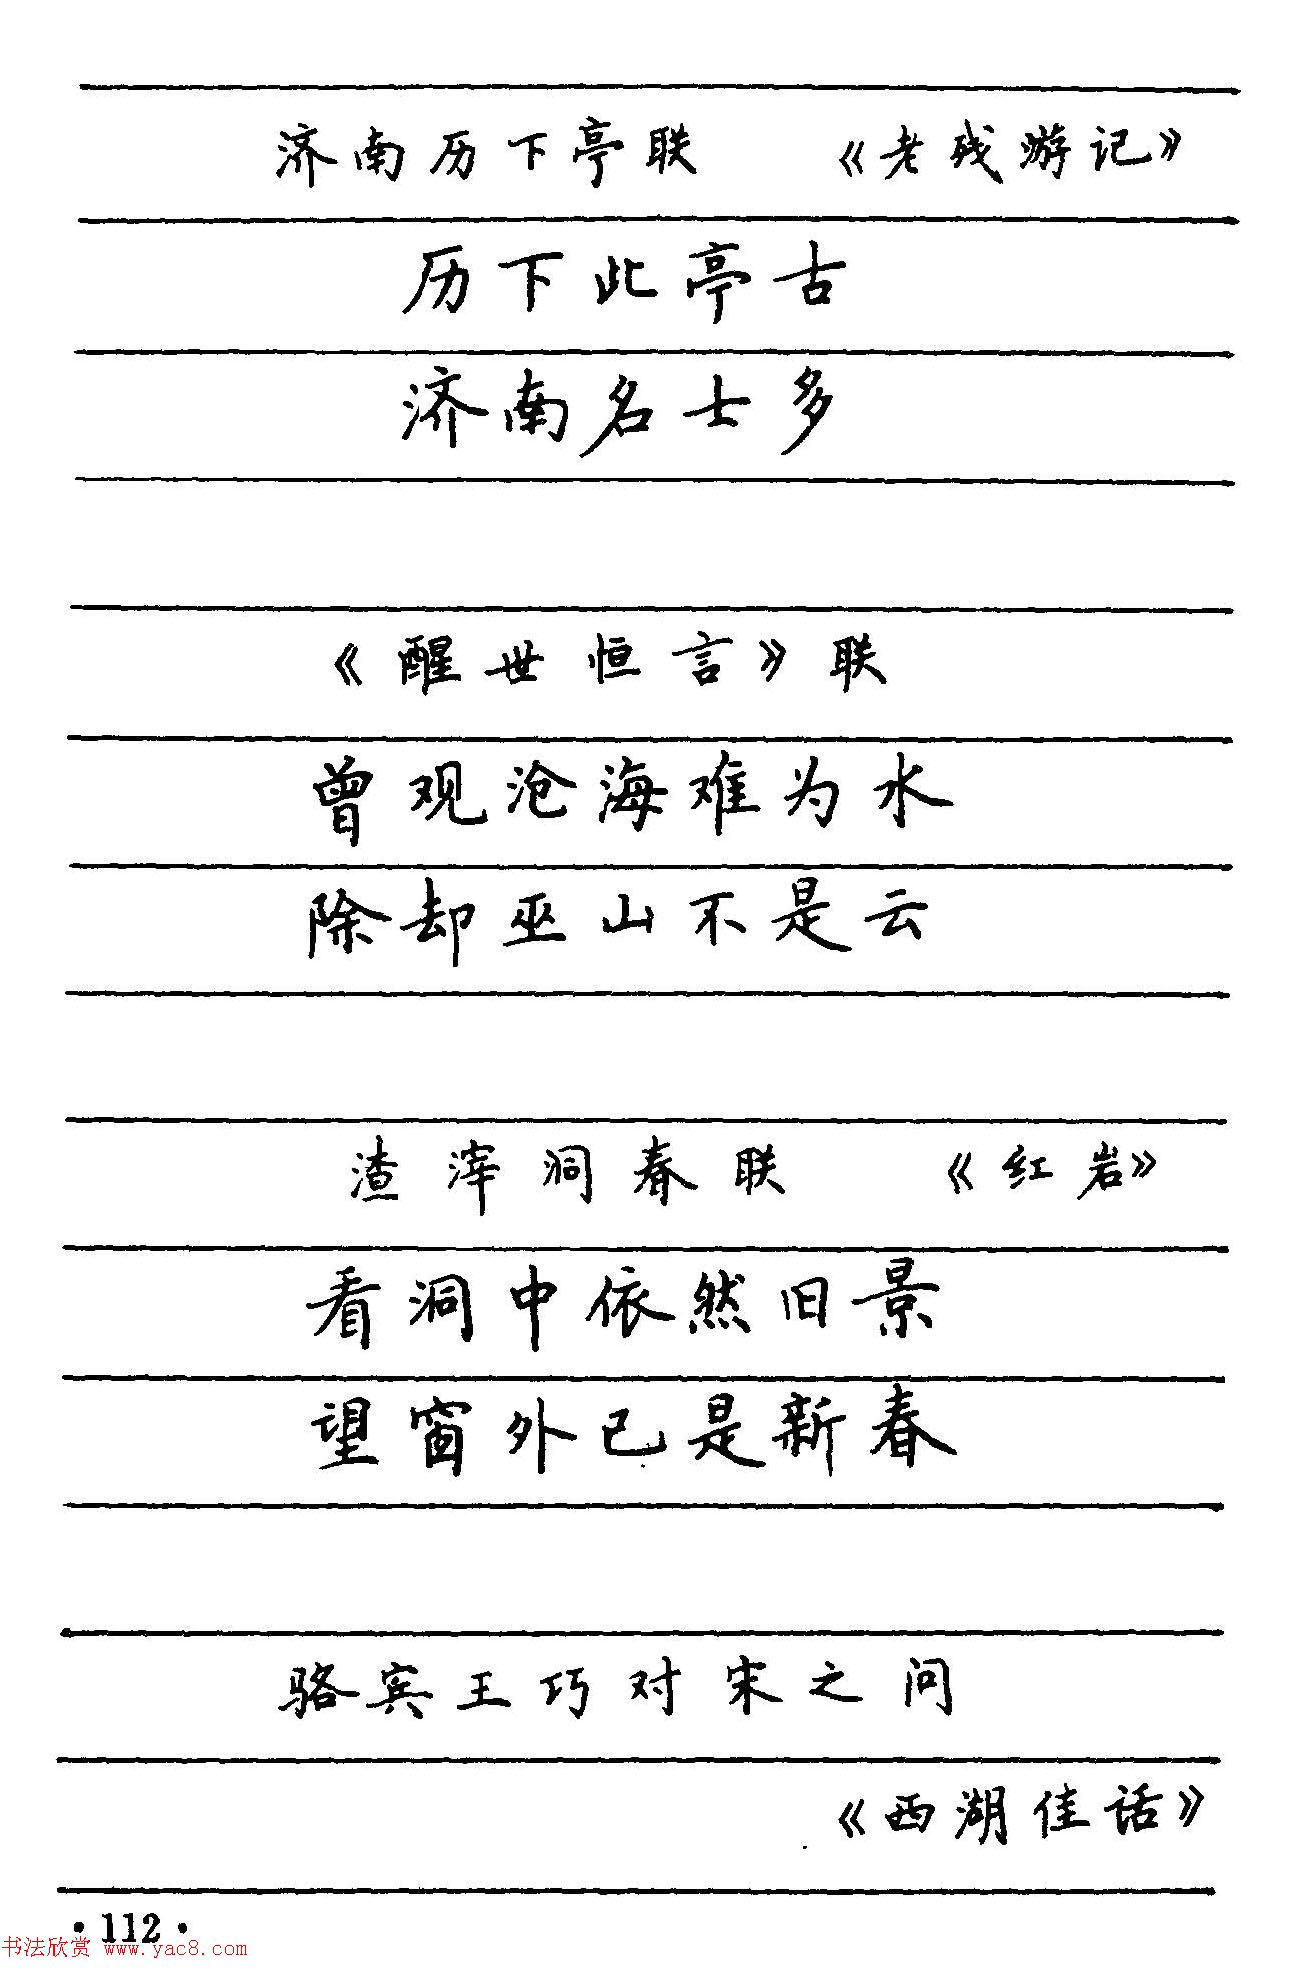 济南历下亭联 《老残游记》
历下此亭古
济南名士多
《醒世恒言》联
曾观沧海难为水
除却巫山不是云
渣滓洞春联 《红岩》
看洞中依然旧景
望窗外已是新春
骆宾王巧对宋之问
《西湖佳话》
·112·
书法欣赏 www.yac8.com